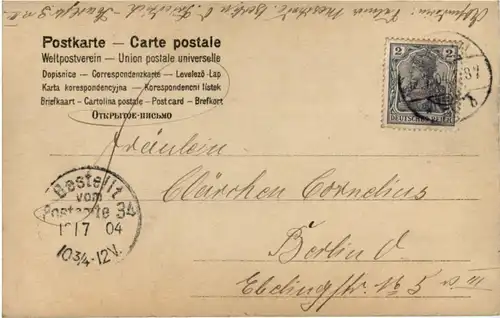 Postkarte — Carte postale
Weltpostverein — Union postale universelle
Dopisnice — Correspondenzkarte — Levelező-Lap
Karta korespondencyjna — Korespondenčni listek
Briefkaart — Cartolina postale — Post card — Brefkort
Открытое-письмо
2
DEUTSCHES REICH
Fräulein
Clärchen Cornelius
Berlin O
Ebelingstr. No 5 v III
Bestellt
vom
Postamte 34
17 04
10¾-12V.